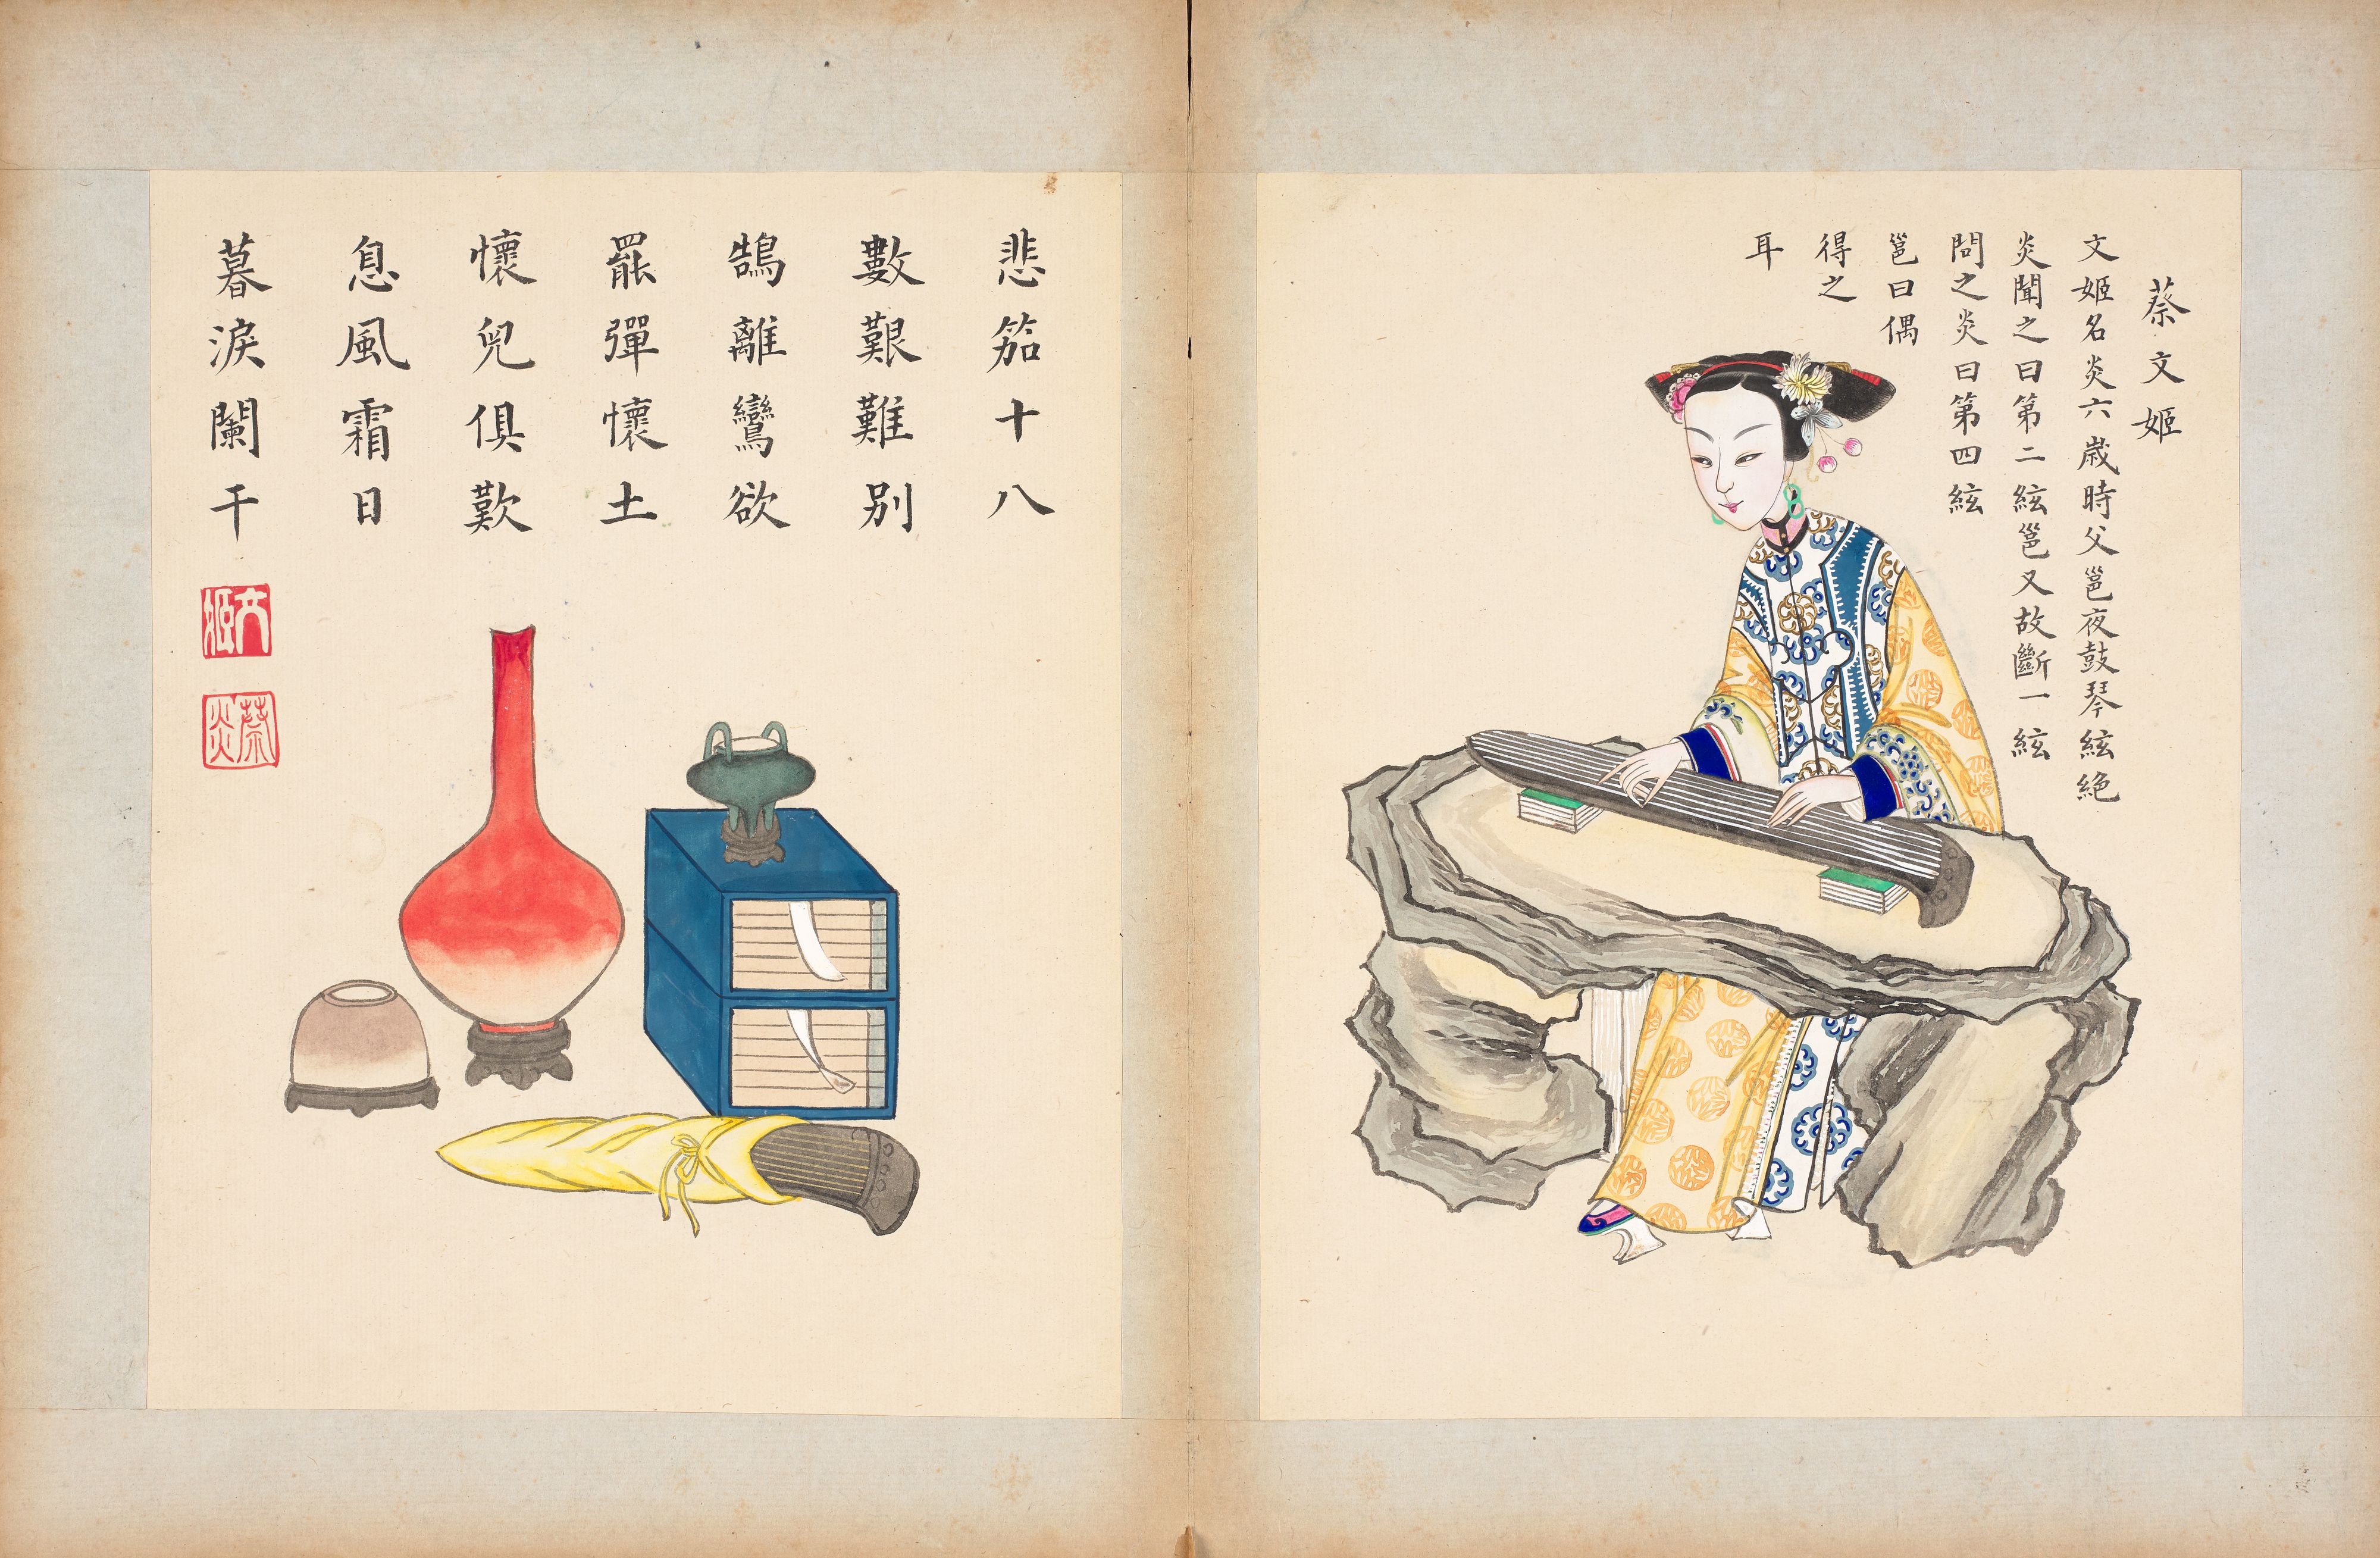 蔡文姬
文姬名炎六歲時父邕夜鼓琴絃絶
炎聞之曰第二絃邕又故斷一絃
問之炎曰第四絃
邕曰偶
得之
耳
悲笳十八
數艱難別
鵠離鸞欲
罷彈懷土
懷兒俱歎
息風霜日
暮淚闌干
文姬
蔡炎